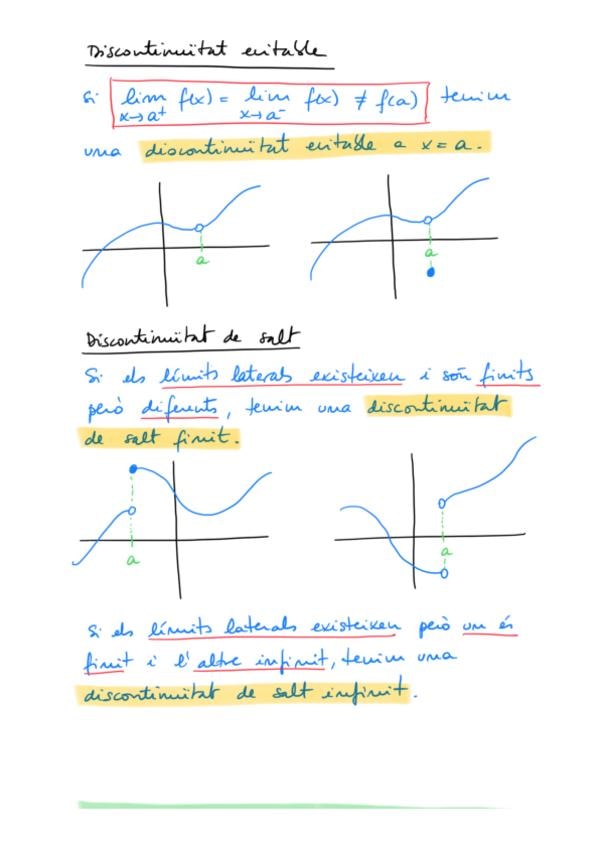 Discontinuïtat evitable
Si lim f(x) = lim f(x) ≠ f(a) tenim
x→a⁺ x→a⁻
una discontinuïtat evitable a x = a.
a
a
Discontinuïtat de salt
Si els límits laterals existeixen i són finits
però diferents, tenim una discontinuïtat
de salt finit.
a
a
Si els límits laterals existeixen però un és
finit i l'altre infinit, tenim una
discontinuïtat de salt infinit.